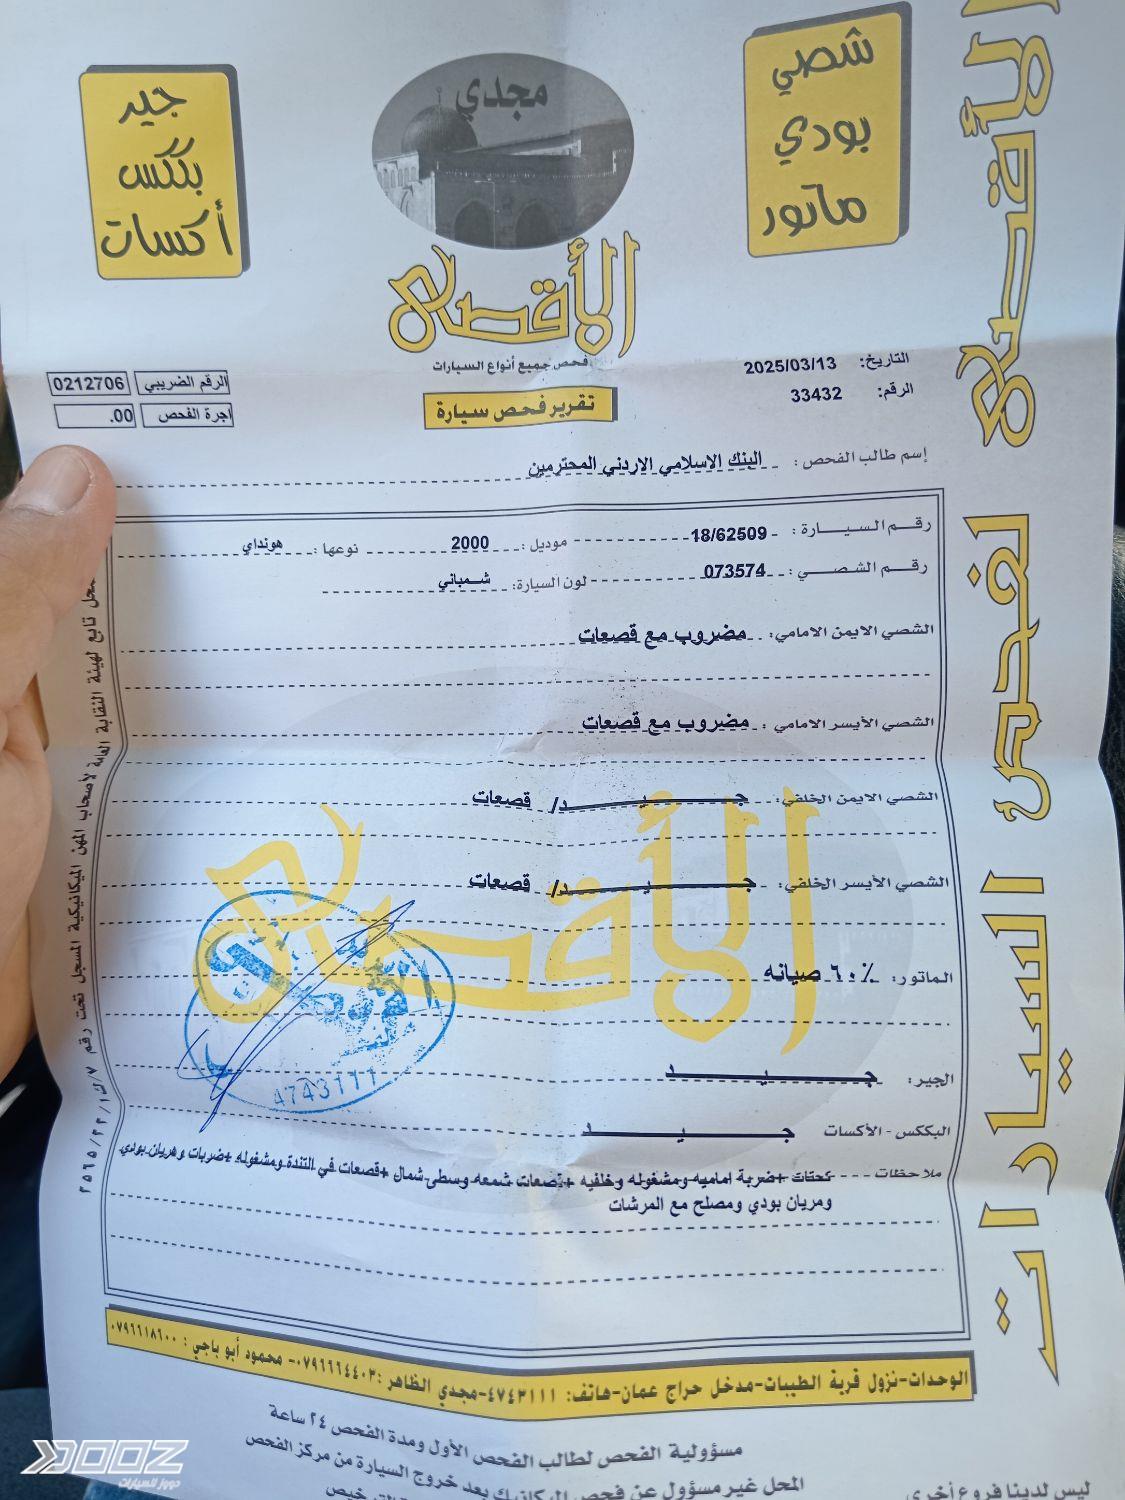 شصي
بودي
ماتور
مجدي
جير
بككس
أكسات
الأقصى
فحص جميع أنواع السيارات
تقرير فحص سيارة
التاريخ: 2025/03/13
الرقم: 33432
الرقم الضريبي 0212706
اجرة الفحص .00
إسم طالب الفحص: البنك الاسلامي الاردني المحترمين
رقم السيارة: 18/62509 موديل: 2000 نوعها: هونداي
رقم الشصي: 073574 لون السيارة: شمباني
الشصي الايمن الامامي: مضروب مع قصعات
الشصي الأيسر الامامي: مضروب مع قصعات
الشصي الايمن الخلفي: جيد/ قصعات
الشصي الأيسر الخلفي: جيد/ قصعات
الماتور: ٦٠٪ صيانه
الجير: جيد
البككس - الأكسات جيد
ملاحظات كحتات +ضربة اماميه ومشغوله وخلفيه +قصعات شمعه وسطى شمال +قصعات في التندة ومشغوله +ضربات وهريان بودي
ومريان بودي ومصلح مع المرشات
الأقصى
4743111
محل تابع لهيئة النقابة العامة لأصحاب المهن الميكانيكية المسجل تحت رقم
الأقصى لفحص السيارات
الوحدات-نزول قرية الطيبات-مدخل حراج عمان-هاتف: ٤٧٤٣١١١-مجدي الظاهر: ٠٧٩٦٦٦٤٤٠٣- محمود أبو باجي: ٠٧٩٦٦١٨٦٠٠
مسؤولية الفحص لطالب الفحص الأول ومدة الفحص ٢٤ ساعة
المحل غير مسؤول عن فحص الميكانيك بعد خروج السيارة من مركز الفحص
ليس لدينا فروع أخرى
DOOZ
دووز للسيارات